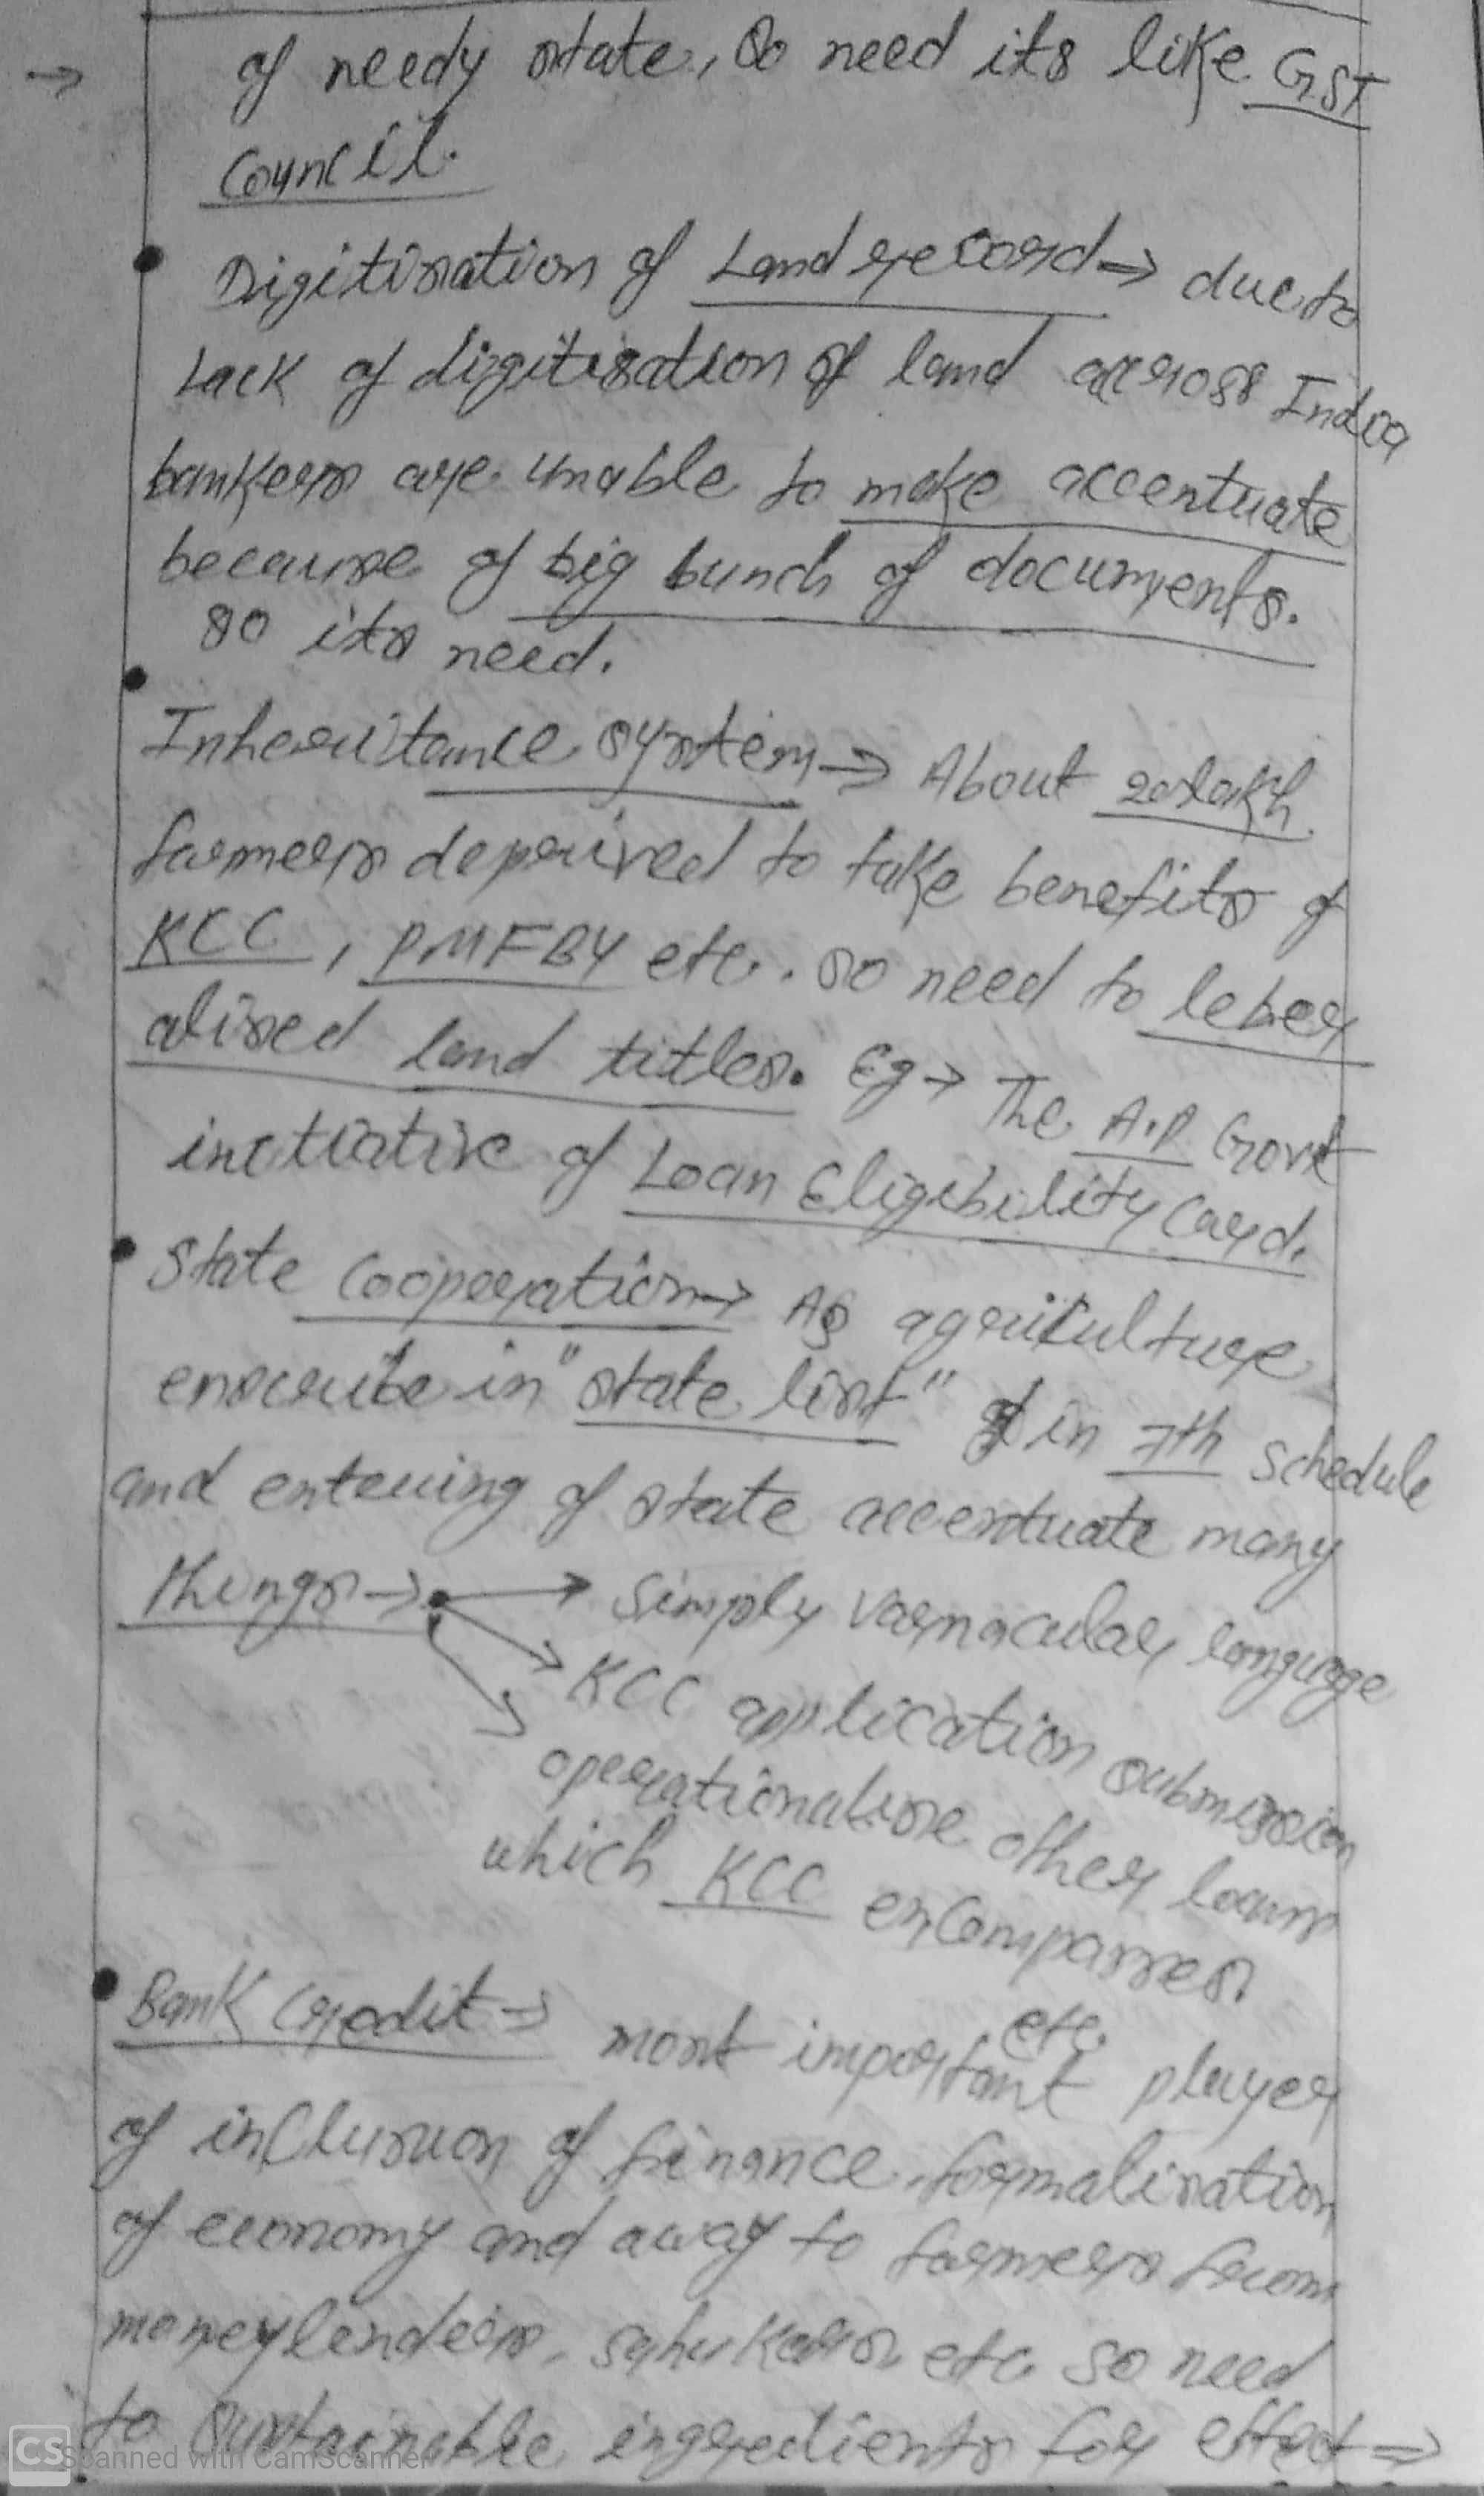 → of needy state, so need its like GST
Council.
• Digitisation of Land record ⇒ due to
Lack of digitisation of land across India
bankers are unable to make accentuate
because of big bunch of documents.
so its need.
• Inheritance system → About 20 lakh
farmers deprived to take benefits of
KCC, PMFBY etc.. so need to leber
alised land titles. Eg → The A.P Govt
inctiative of Loan Eligibility Card.
• State Cooperation → As agriculture
enscribe in "state list" in 7th schedule
and entering of state accentuate many
things → → Simply varnacular language
→ KCC application submission
→ operationalise other loans
which KCC enCompasses.
etc.
• Bank Credit → most important player
of inclusion of finance, formalisation
of economy and away to farmers from
moneylenders, sahukars etc. so need
to sustainable ingredients for effect ⇒
CS Scanned with CamScanner